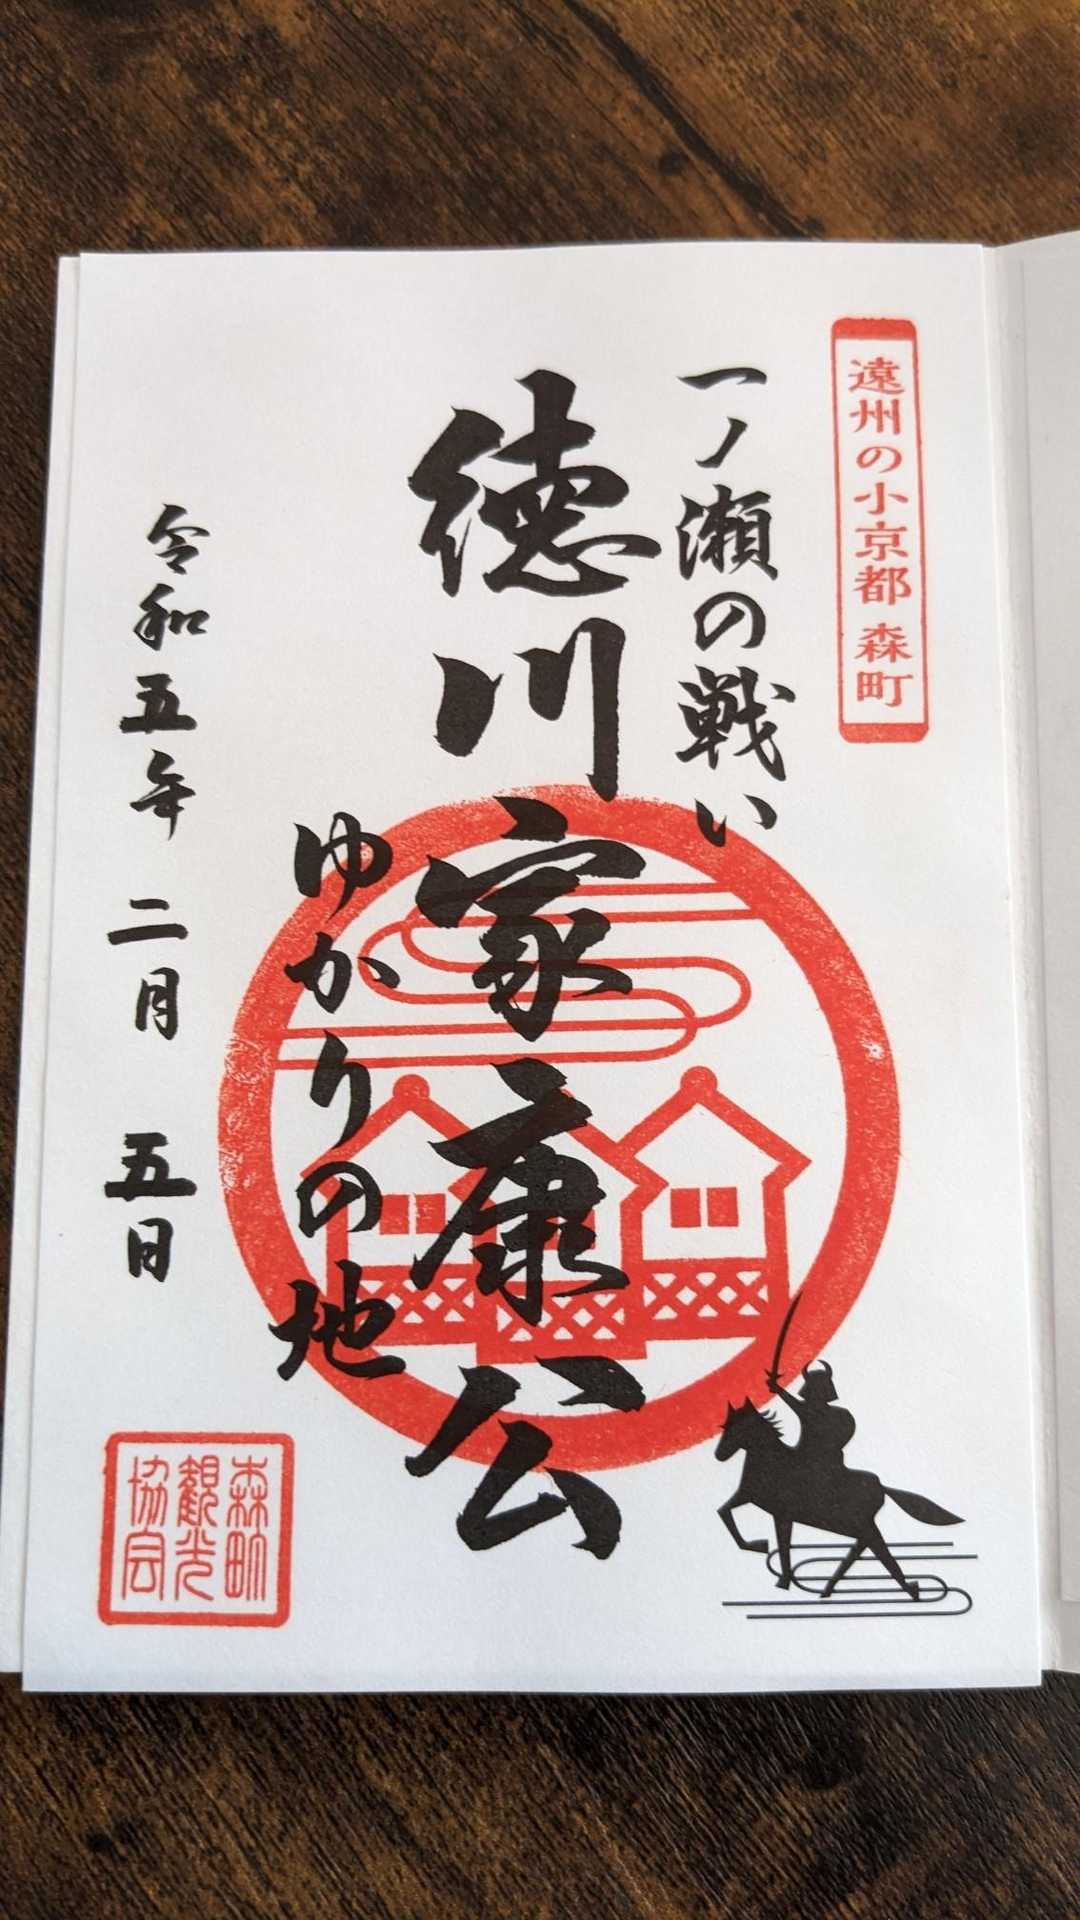 遠州の小京都 森町
一ノ瀬の戦い
徳川家康公
ゆかりの地
令和五年 二月 五日
森町
観光
協会